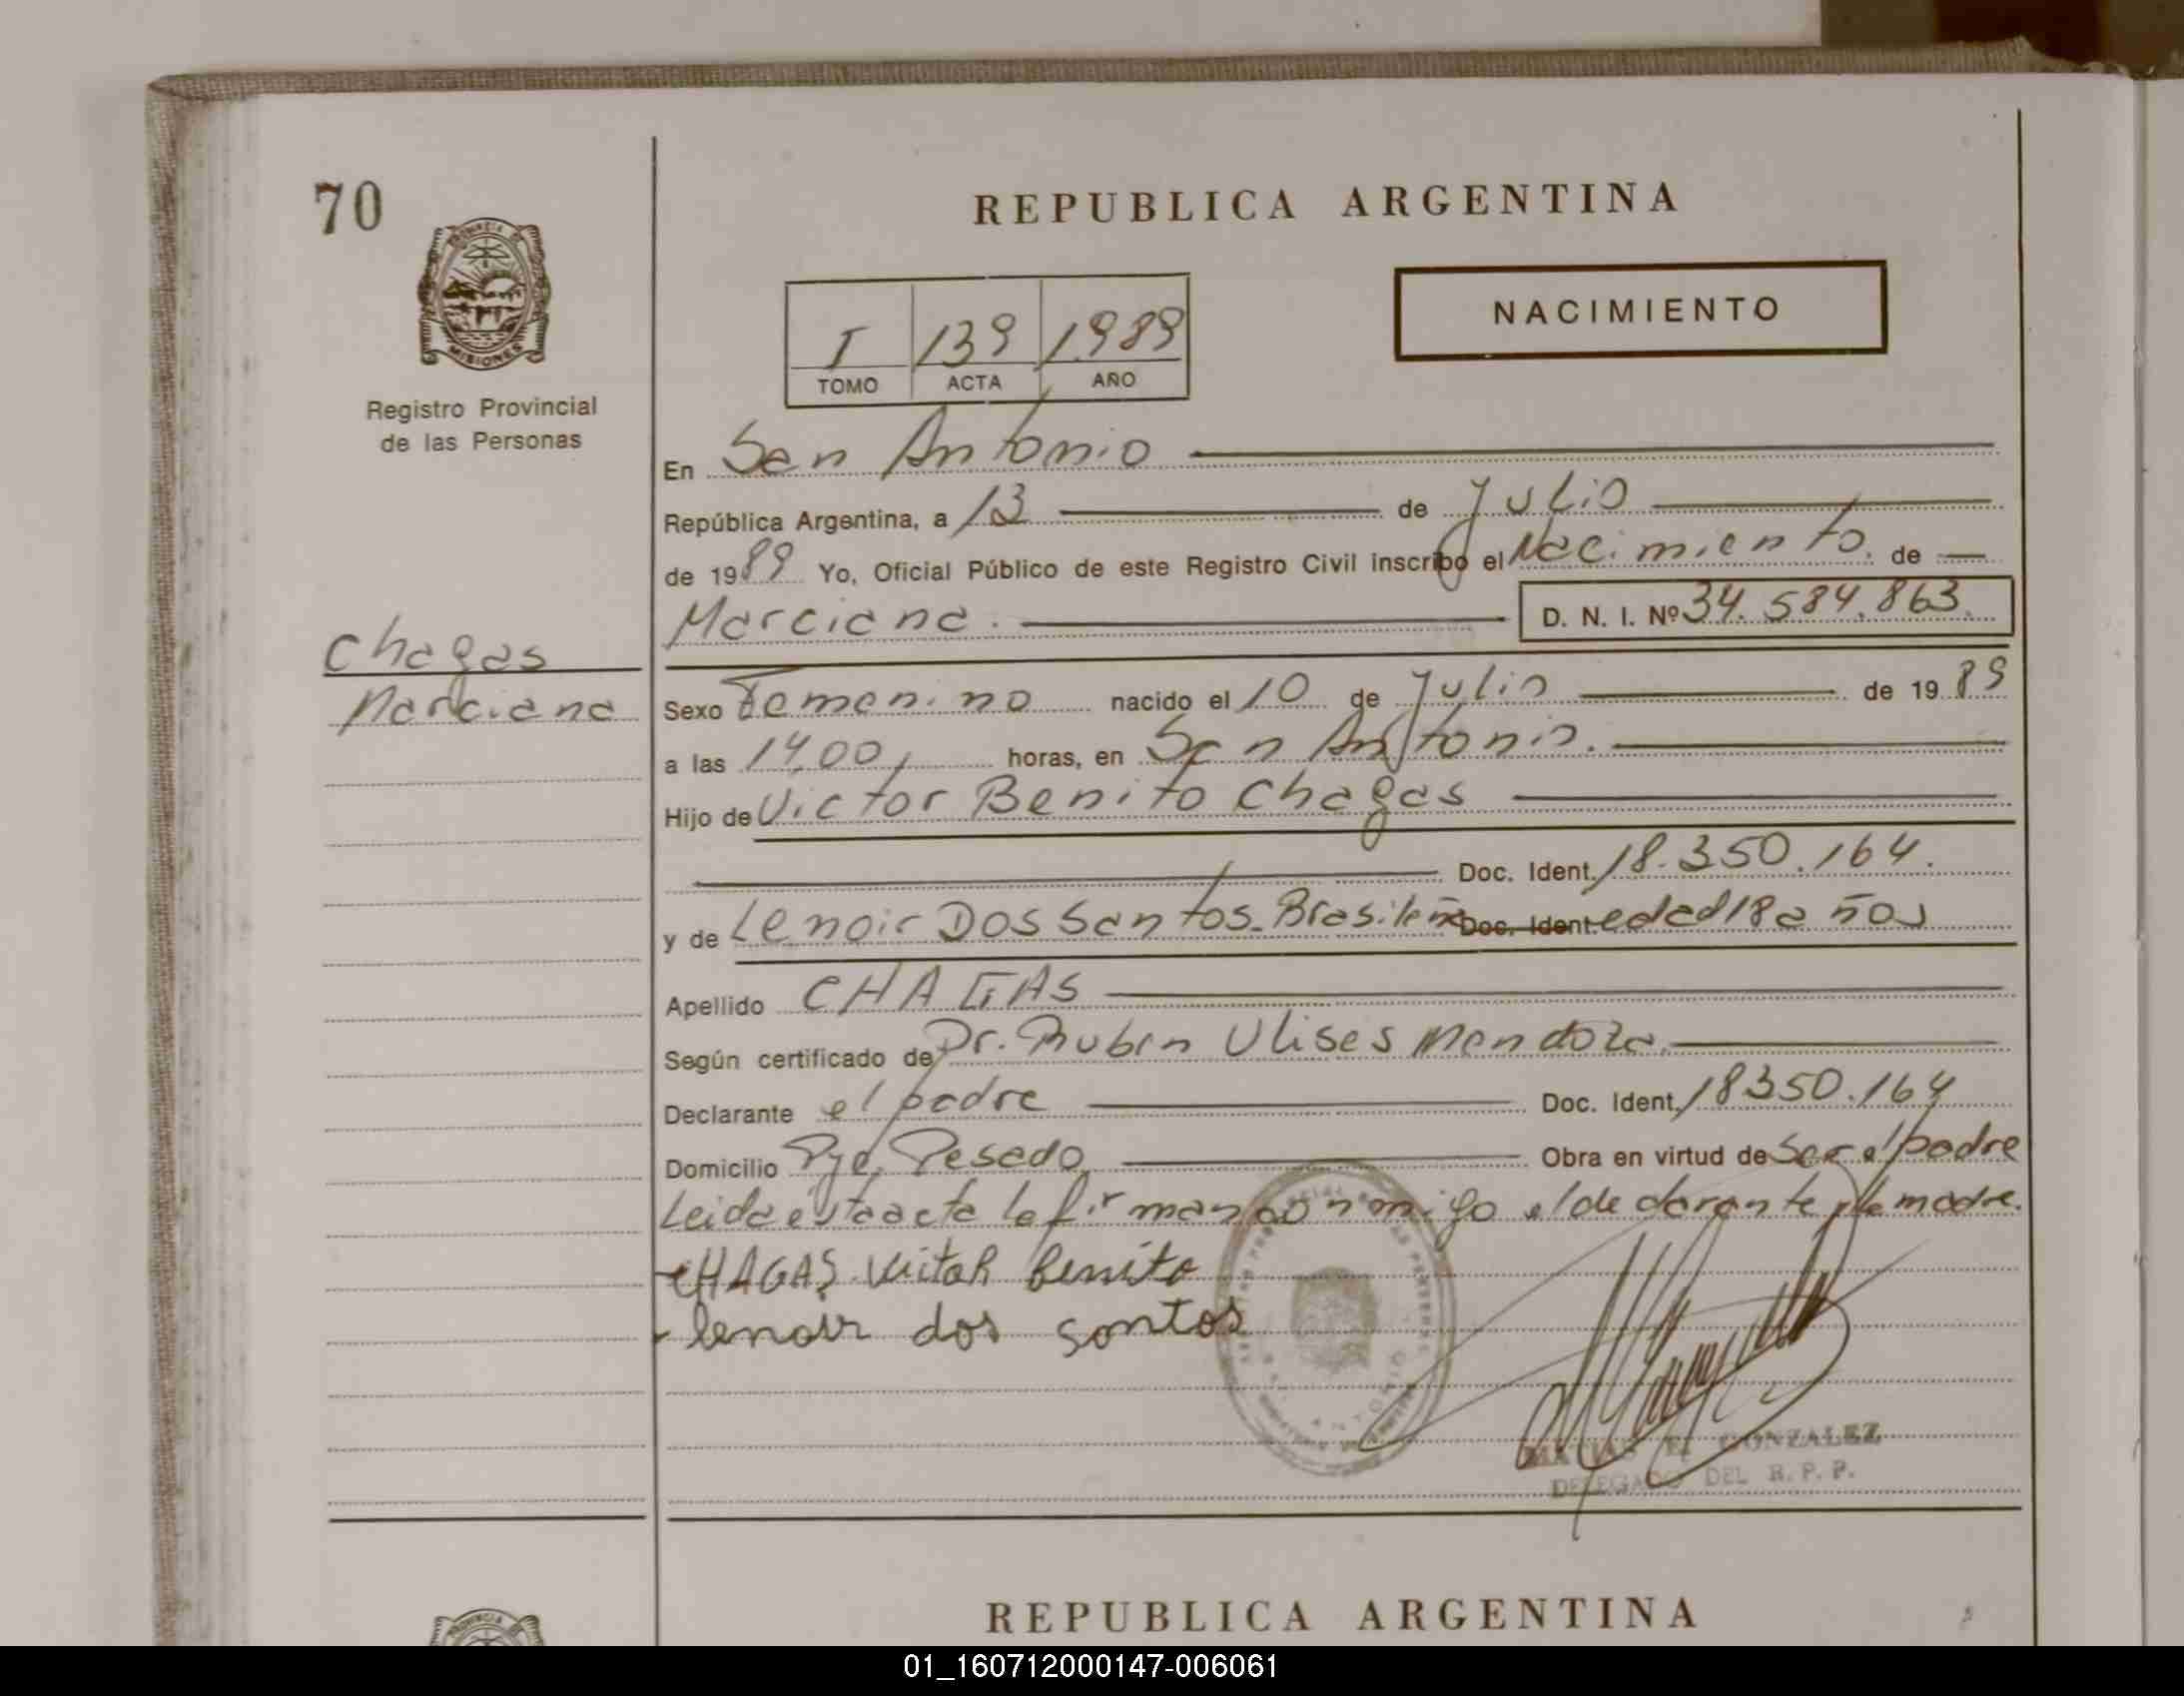 70
REPUBLICA ARGENTINA
PROVINCIA DE
MISIONES
Registro Provincial
de las Personas
NACIMIENTO
I 139 1989
TOMO ACTA AÑO
En San Antonio
República Argentina, a 13 de Julio
de 1989 Yo, Oficial Público de este Registro Civil inscribo el Nacimiento. de
Marciana. D. N. I. Nº 34.584.863.
Chagas
Marciana
Sexo Femenino nacido el 10 de Julio de 1989
a las 14,00, horas, en San Antonio.
Hijo de Victor Benito Chagas
Doc. Ident. 18.350.164.
y de Lenoir Dos Santos. Brasileña Doc. Ident. edad 18 años
Apellido CHAGAS
Según certificado de Dr. Ruben Ulises Mendoza.
Declarante el padre Doc. Ident. 18350.164
Domicilio Pje. Pesado Obra en virtud de Ser el padre
Leida esta acta la firman conmigo el declarante y la madre.
CHAGAS Victor Benito
lenoir dos santos
E. GONZALEZ
DELEGADO DEL R. P. P.
REPUBLICA ARGENTINA
PROVINCIA
01_160712000147-006061